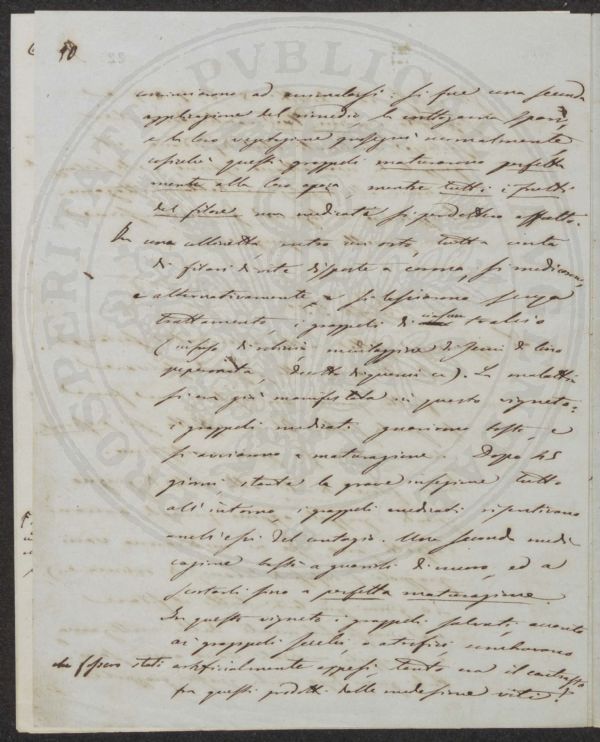 10
cominciarono ad ammalarsi: si fece una seconda
applicazione del rimedio, la crittogama sparì,
e la loro vegetazione proseguì normalmente
cosicchè questi grappoli maturarono perfetta
mente alla loro epoca, mentre tutti i frutti
del filare non medicato si perdettero affatto.
In una collinetta, entro un orto, tutta cinta
di filari di vite disposte a corona, si medicarono,
e alternativamente, e si lasciarono senza
trattamento, i grappoli di ciascun tralcio
(infuso di robinia, mucilaggine di semi di lino
peperonata, decotto di quercia ec). La malattia
si era già manifestata in questo vigneto:
i grappoli medicati guarirono tosto, e
si avviarono a maturazione. Dopo 45
giorni, stante la grave infezione tutto
all'intorno, i grappoli medicati risentirono
anch'essi del contagio. Una seconda medi
cazione bastò a guarirli di nuovo, ed a
portarli sino a perfetta maturazione.
In questo vigneto i grappoli salvati, accanto
ai grappoli secchi, o atrofici sembravano
che fossero stati artificialmente appesi, tanto era il contrasto
fra questi prodotti delle medesime viti!
PROSPERITATI PUBLICAE